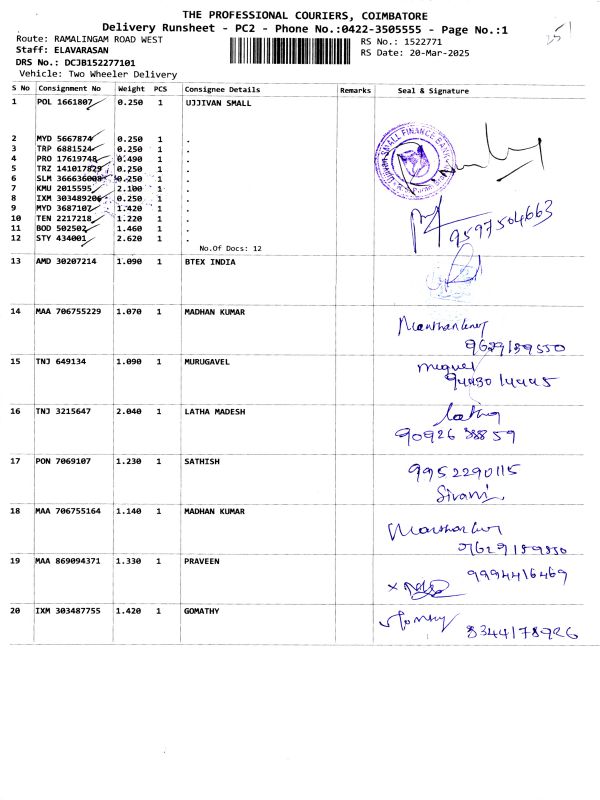 THE PROFESSIONAL COURIERS, COIMBATORE
Delivery Runsheet - PC2 - Phone No.:0422-3505555 - Page No.:1
Route: RAMALINGAM ROAD WEST RS No.: 1522771
Staff: ELAVARASAN RS Date: 20-Mar-2025
DRS No.: DCJB152277101
Vehicle: Two Wheeler Delivery
S No Consignment No Weight PCS Consignee Details Remarks Seal & Signature
1 POL 1661807 0.250 1 UJJIVAN SMALL
2 MYD 5667874 0.250 1 .
3 TRP 6881524 0.250 1 .
4 PRO 17619748 0.490 1 .
5 TRZ 141017829 0.250 1 .
6 SLM 366636008 0.250 1 .
7 KMU 2015595 2.100 1 .
8 IXM 303489206 0.250 1 .
9 MYD 3687102 1.420 1 .
10 TEN 2217218 1.220 1 .
11 BOD 502502 1.460 1 .
12 STY 434001 2.620 1 .
No.Of Docs: 12
9597504663
13 AMD 30207214 1.090 1 BTEX INDIA
14 MAA 706755229 1.070 1 MADHAN KUMAR
9629189550
15 TNJ 649134 1.090 1 MURUGAVEL
16 TNJ 3215647 2.040 1 LATHA MADESH
Latha
90926 38859
17 PON 7069107 1.230 1 SATHISH
9952290115
Sivani
18 MAA 706755164 1.140 1 MADHAN KUMAR
19 MAA 869094371 1.330 1 PRAVEEN
9994416469
20 IXM 303487755 1.420 1 GOMATHY
8344178926